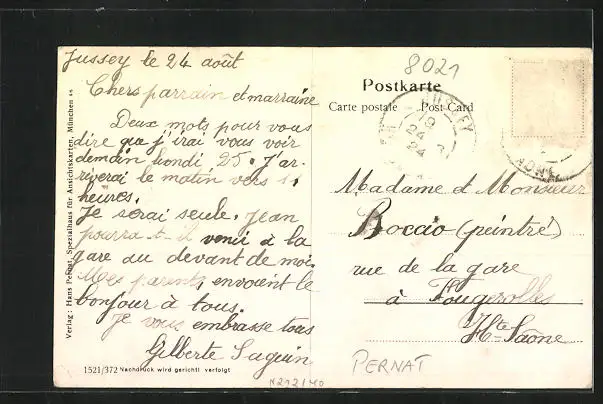 Jussey le 24 août
Chers parrain et marraine
Deux mots pour vous
dire que j'irai vous voir
demain lundi 25. J'ar-
riverai le matin vers 11
heures.
Je serai seule. Jean
pourra-t-il venir à la
gare au devant de moi.
Mes parents envoient le
bonjour à tous.
Je vous embrasse tous
Gilberte Saguin
1521/372 Nachdruck wird gerichtl verfolgt
Verlag: Hans Pernat, Spezialhaus für Ansichtskarten, München
8021
Postkarte
Carte postale Post Card
19
24 8
24
Madame et Monsieur
Boccio (peintre)
rue de la gare
à Fougerolles
Hte-Saône
PERNAT
N212/40